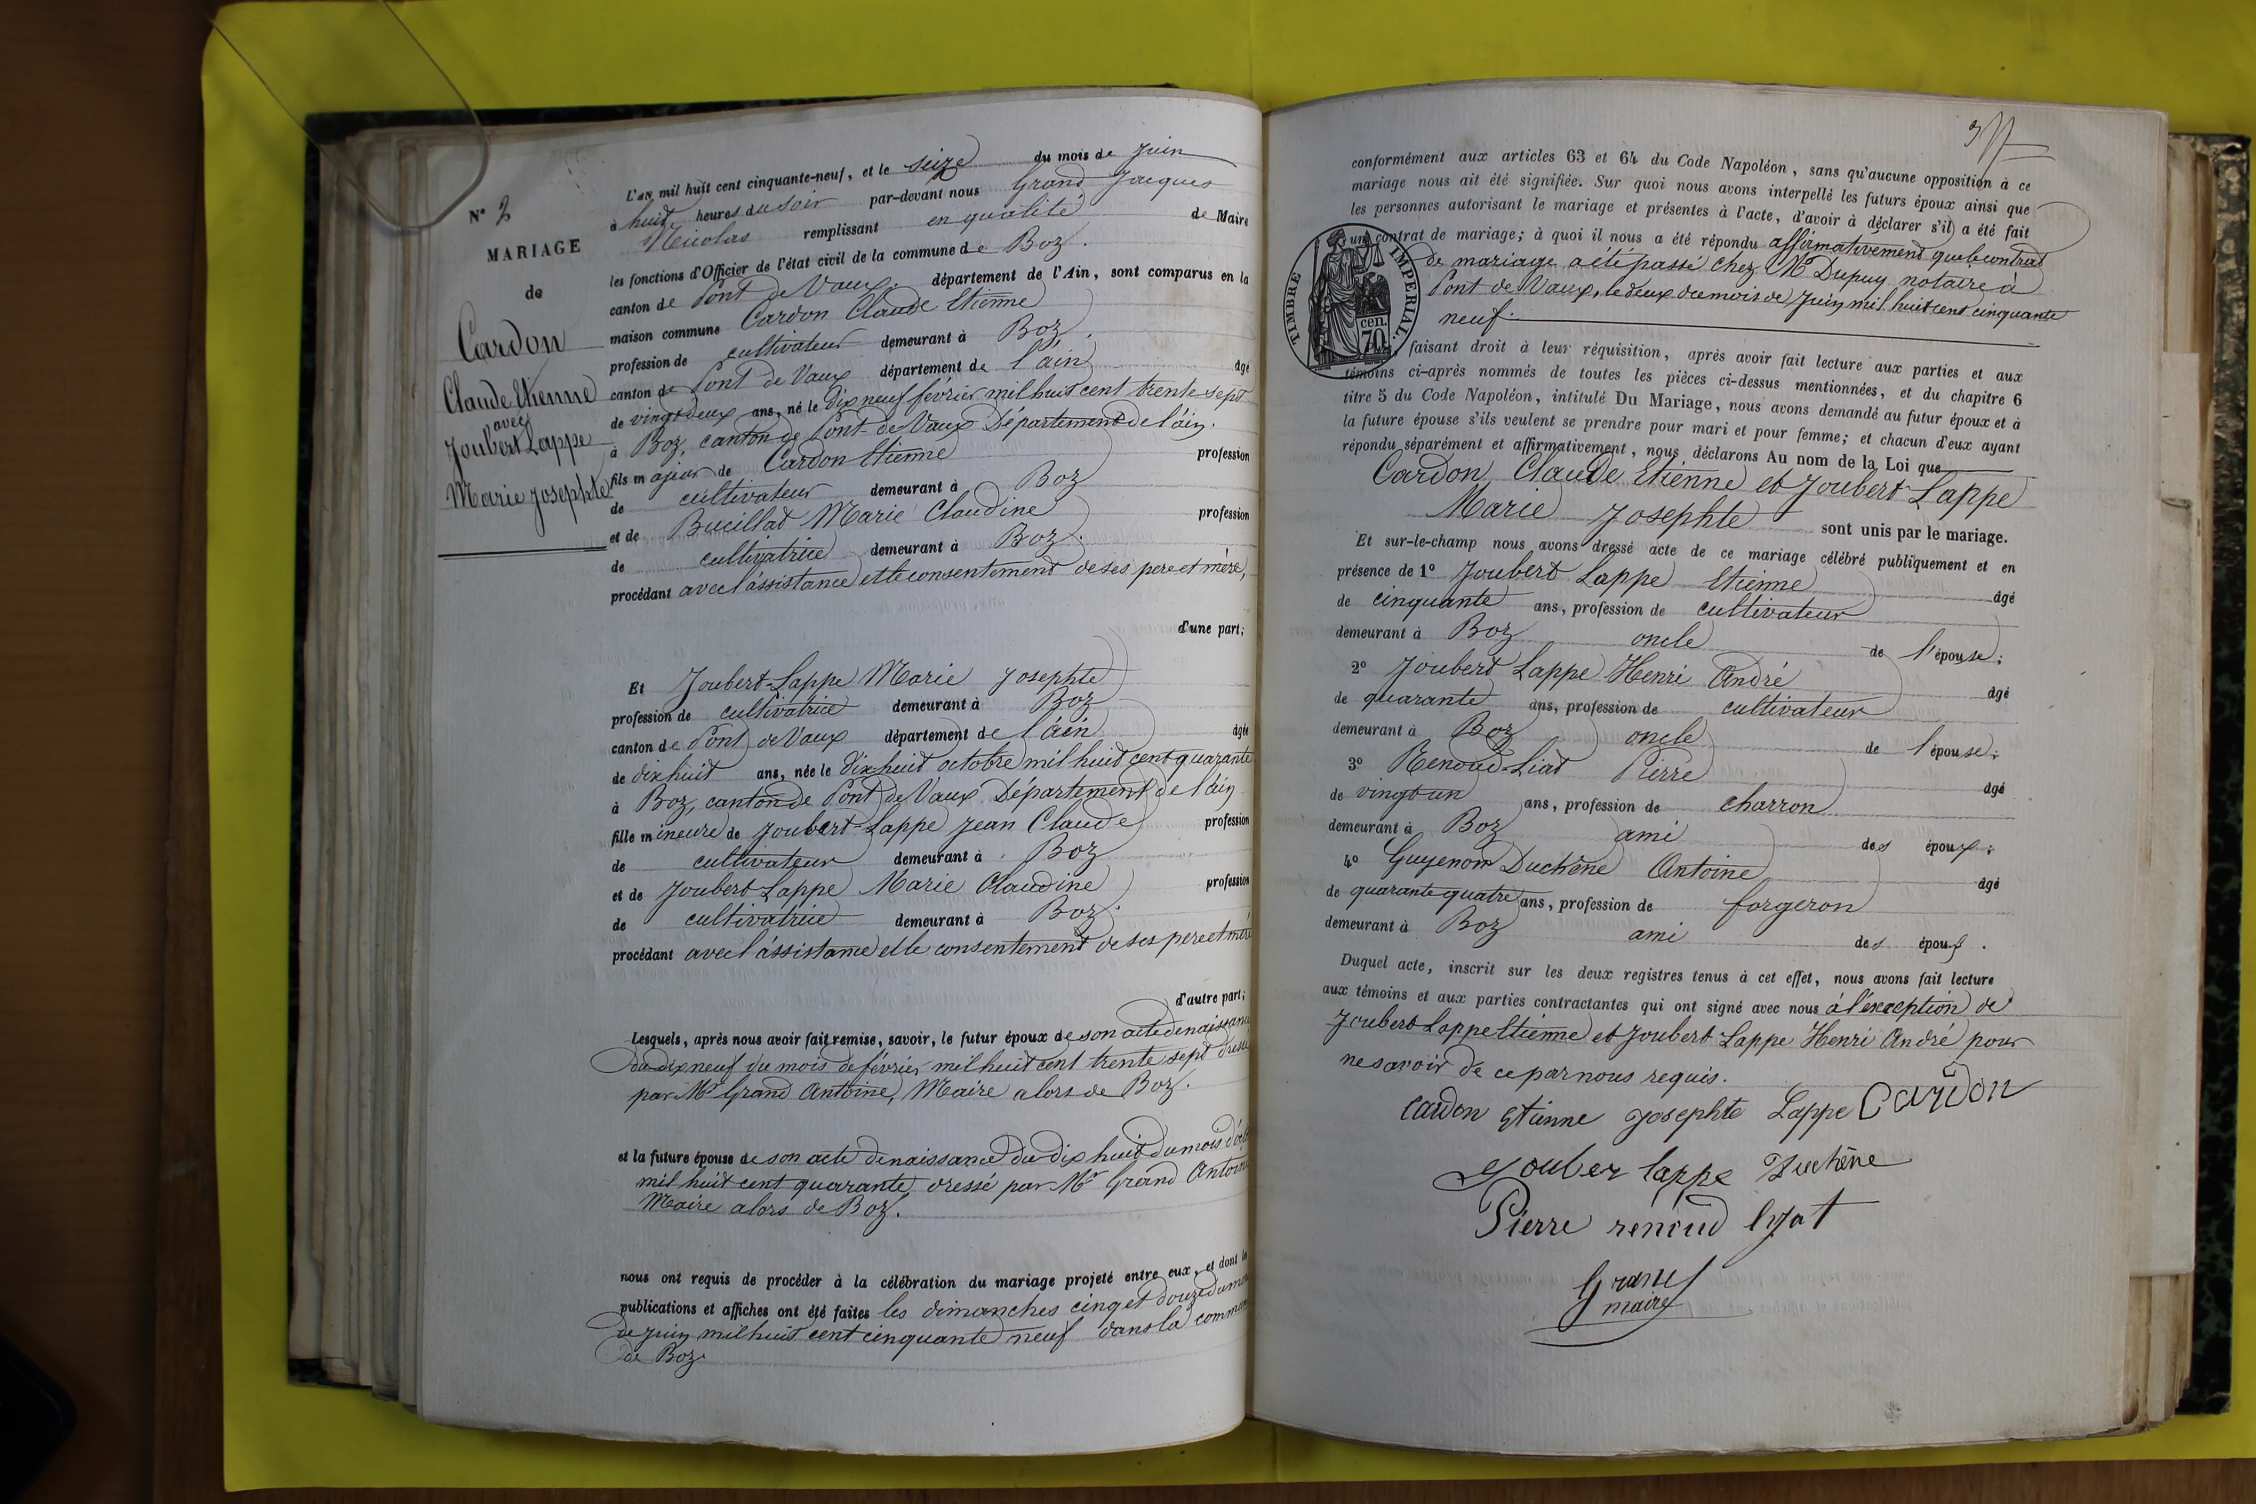 N° 2
MARIAGE
de
Cardon
Claude Etienne
avec
Joubert Lappe
Marie Josephte
L'an mil huit cent cinquante-neuf, et le seize du mois de Juin
à huit heures du soir par-devant nous Grand Jacques
Nicolas remplissant en qualité de Maire
les fonctions d'Officier de l'état civil de la commune de Boz.
canton de Pont de Vaux, département de l'Ain, sont comparus en la
maison commune Cardon Claude Etienne
profession de cultivateur demeurant à Boz,
canton de Pont de Vaux département de l'áin âgé
de vingt deux ans, né le dix neuf février mil huit cent trente sept
à Boz, canton de Pont de Vaux Département de l'áin.
fils majeur de Cardon Etienne profession
de cultivateur demeurant à Boz
et de Bucillat Marie Claudine profession
de cultivatrice demeurant à Boz.
procédant avec l'ássistance et le consentement de ses pere et mère,
d'une part;
Et Joubert-Lappe Marie Josephte
profession de cultivatrice demeurant à Boz
canton de Pont de Vaux département de l'áin âgée
de dix huit ans, née le dix huit octobre mil huit cent quarante
à Boz, canton de Pont de Vaux Département de l'áin
fille mineure de Joubert-Lappe Jean Claude profession
de cultivateur demeurant à Boz
et de Joubert Lappe Marie Claudine profession
de cultivatrice demeurant à Boz.
procédant avec l'ássistance et le consentement de ses pere et mère
d'autre part;
Lesquels, après nous avoir fait remise, savoir, le futur époux de son acte de naissance
du dix neuf du mois de février mil huit cent trente sept dressé
par Mr Grand Antoine, Maire alors de Boz.
et la future épouse de son acte de naissance du dix huit du mois d'oct
mil huit cent quarante, dressé par Mr Grand Antoine
Maire alors de Boz.
nous ont requis de procéder à la célébration du mariage projeté entre eux, et dont les
publications et affiches ont été faites les dimanches cinq et douze du mois
de Juin mil huit cent cinquante neuf dans la commune
de Boz
conformément aux articles 63 et 64 du Code Napoléon, sans qu'aucune opposition à ce
mariage nous ait été signifiée. Sur quoi nous avons interpellé les futurs époux ainsi que
les personnes autorisant le mariage et présentes à l'acte, d'avoir à déclarer s'il a été fait
un contrat de mariage; à quoi il nous a été répondu affirmativement que le contrat
de mariage a été passé chez Me Dupuy notaire à
Pont de Vaux, le deux du mois de Juin mil huit cent cinquante
neuf.
TIMBRE IMPÉRIAL.
70 cen.
faisant droit à leur réquisition, après avoir fait lecture aux parties et aux
témoins ci-après nommés de toutes les pièces ci-dessus mentionnées, et du chapitre 6
titre 5 du Code Napoléon, intitulé Du Mariage, nous avons demandé au futur époux et à
la future épouse s'ils veulent se prendre pour mari et pour femme; et chacun d'eux ayant
répondu séparément et affirmativement, nous déclarons Au nom de la Loi que
Cardon Claude Etienne et Joubert-Lappe
Marie Josephte sont unis par le mariage.
Et sur-le-champ nous avons dressé acte de ce mariage célébré publiquement et en
présence de 1° Joubert Lappe Etienne âgé
de cinquante ans, profession de cultivateur
demeurant à Boz oncle de l'épouse;
2° Joubert Lappe Henri André âgé
de quarante ans, profession de cultivateur
demeurant à Boz oncle de l'épouse;
3° Renoud-Liat Pierre âgé
de vingt un ans, profession de charron
demeurant à Boz ami des époux;
4° Guyenon Duchêne Antoine âgé
de quarante quatre ans, profession de forgeron
demeurant à Boz ami des époux.
Duquel acte, inscrit sur les deux registres tenus à cet effet, nous avons fait lecture
aux témoins et aux parties contractantes qui ont signé avec nous à l'exception de
Joubert Lappe Etienne et Joubert Lappe Henri André pour
ne savoir de ce par nous requis.
Cardon Etienne Josephte Lappe Cardon
Jouber lappe Duchêne
Pierre renoud lyat
Grand
maire